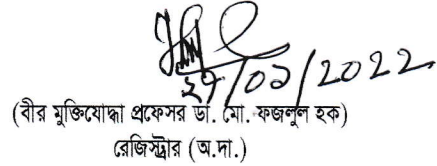 ২৭/০১/2022
(বীর মুক্তিযোদ্ধা প্রফেসর ডা. মো. ফজলুল হক)
রেজিস্ট্রার (অ.দা.)